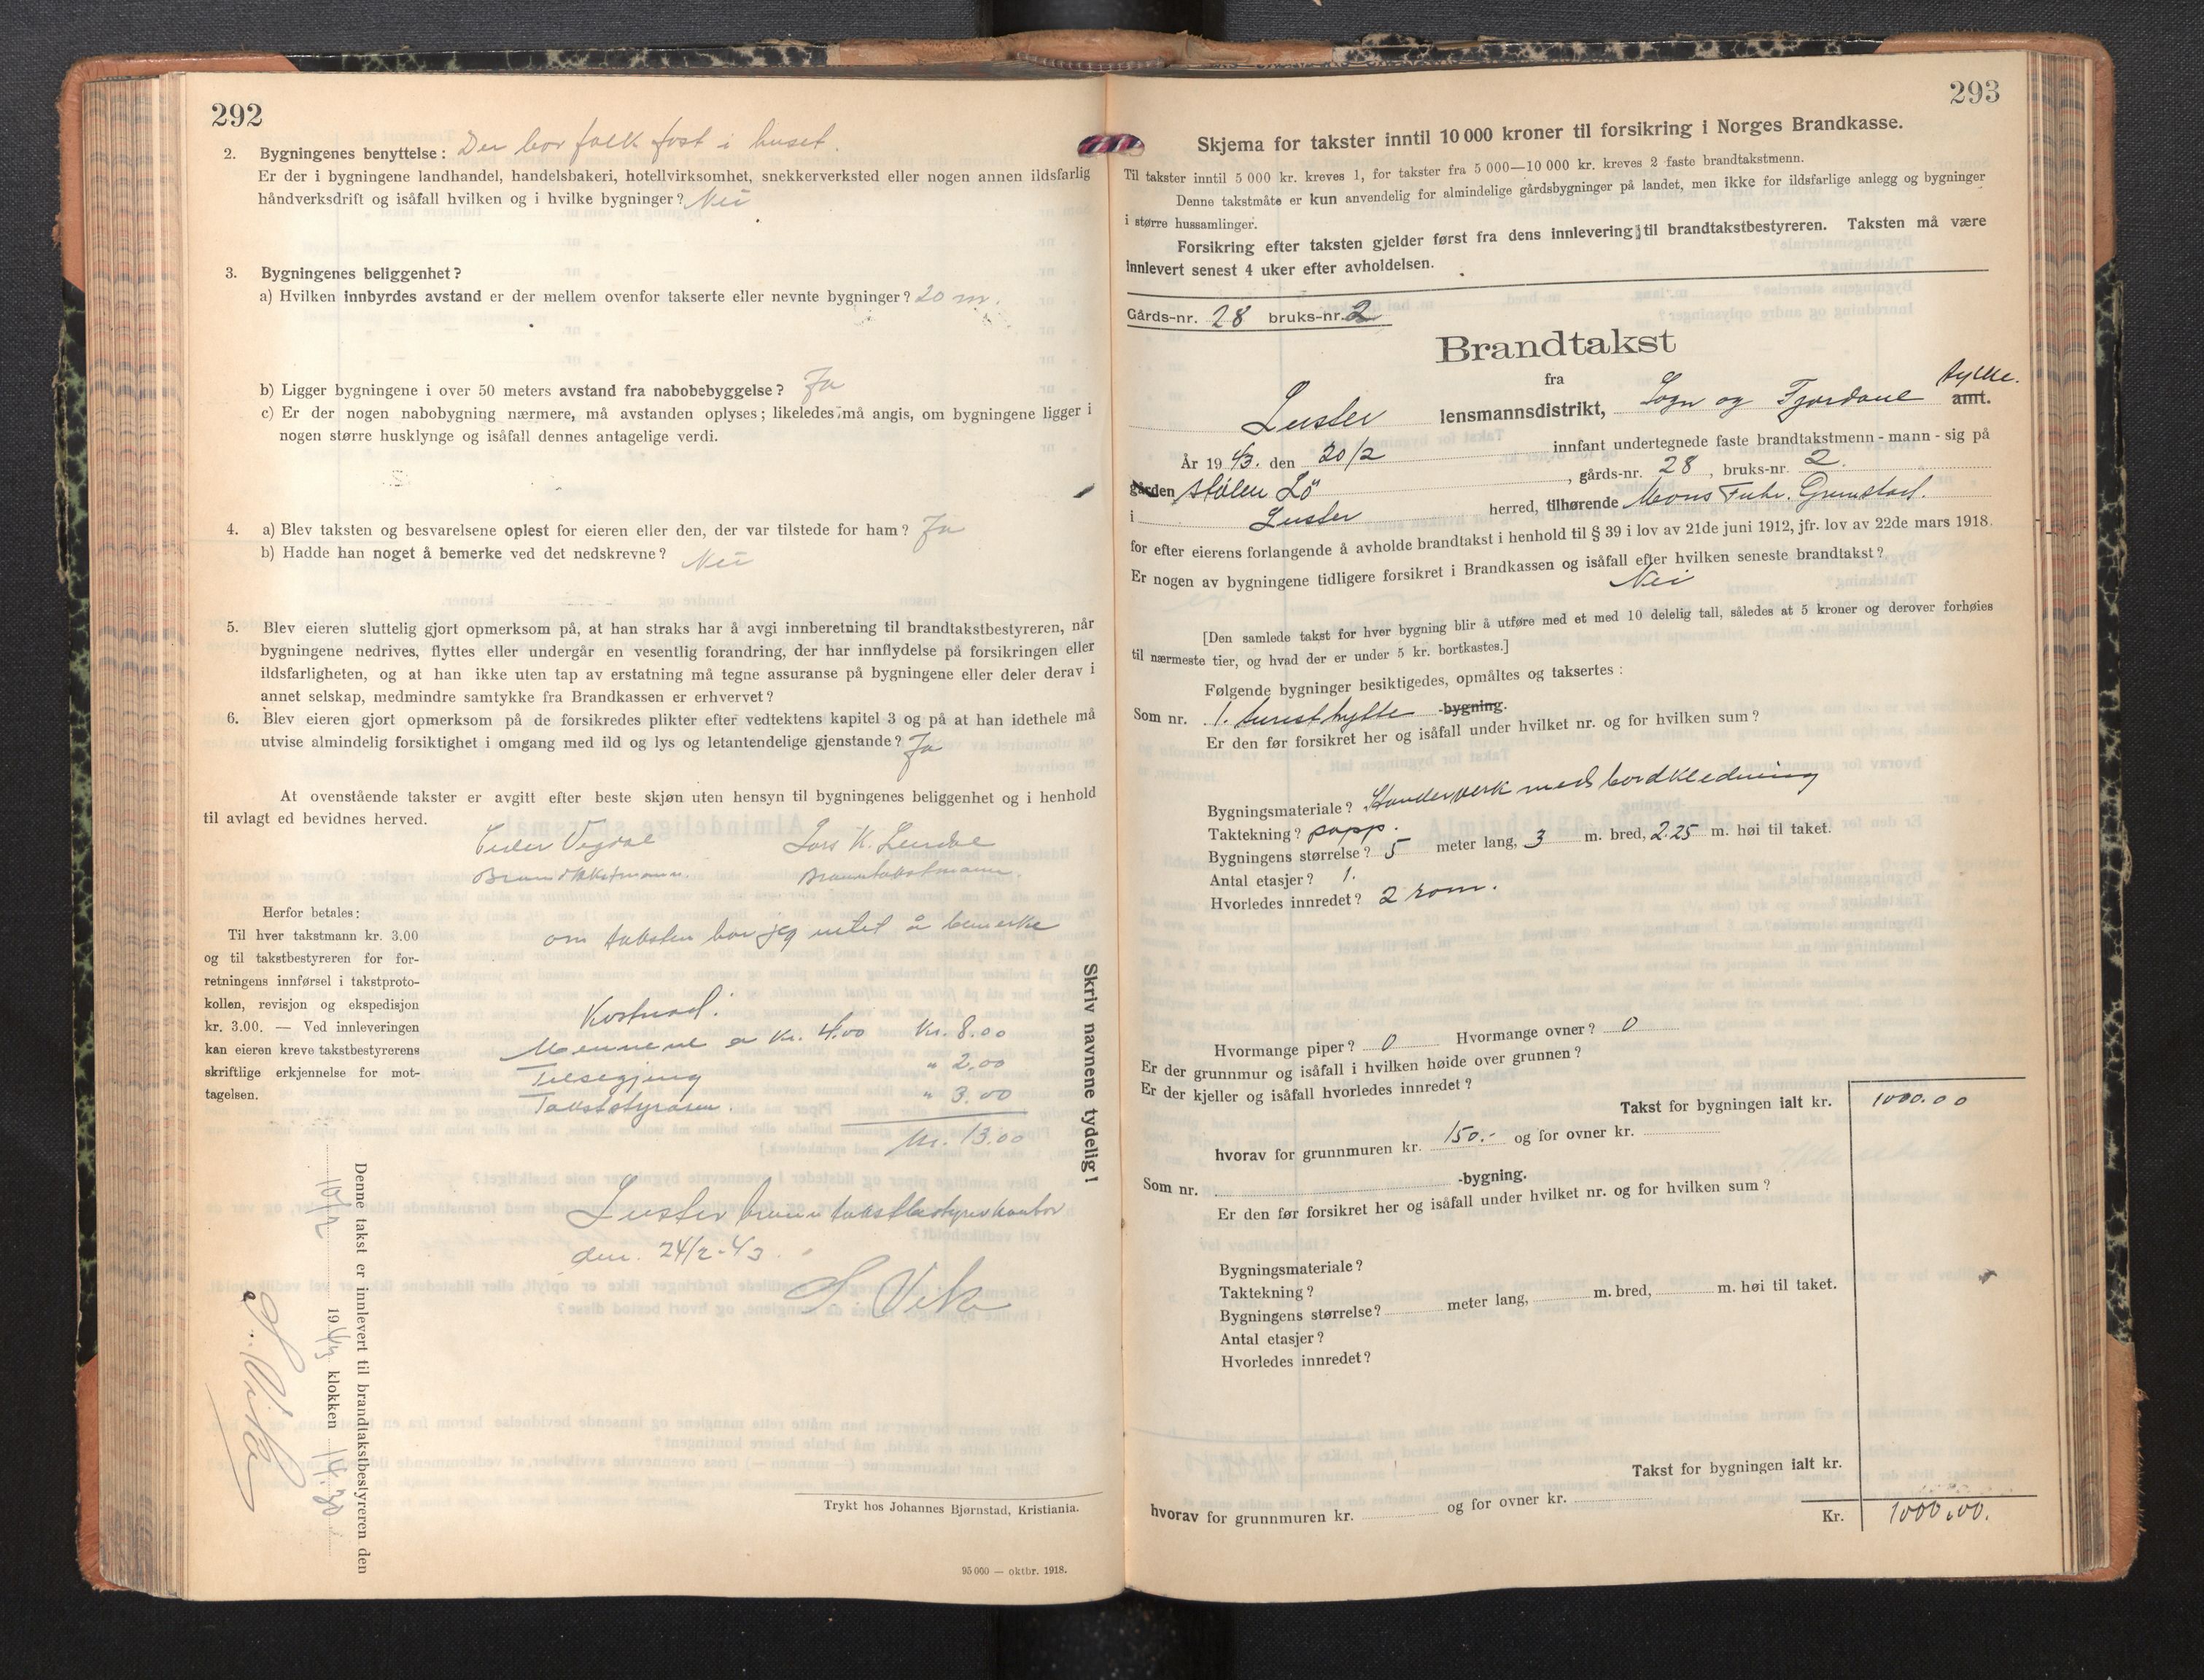 292
2. Bygningenes benyttelse: Der bor folk fast i huset.
Er der i bygningene landhandel, handelsbakeri, hotellvirksomhet, snekkerverksted eller nogen annen ildsfarlig
håndverksdrift og isåfall hvilken og i hvilke bygninger? Nei
3. Bygningenes beliggenhet?
a) Hvilken innbyrdes avstand er der mellem ovenfor takserte eller nevnte bygninger? 20 m.
b) Ligger bygningene i over 50 meters avstand fra nabobebyggelse? Ja
c) Er der nogen nabobygning nærmere, må avstanden oplyses; likeledes må angis, om bygningene ligger i
nogen større husklynge og isåfall dennes antagelige verdi.
4. a) Blev taksten og besvarelsene oplest for eieren eller den, der var tilstede for ham? Ja
b) Hadde han noget å bemerke ved det nedskrevne? Nei
5. Blev eieren sluttelig gjort opmerksom på, at han straks har å avgi innberetning til brandtakstbestyreren, når
bygningene nedrives, flyttes eller undergår en vesentlig forandring, der har innflydelse på forsikringen eller
ildsfarligheten, og at han ikke uten tap av erstatning må tegne assuranse på bygningene eller deler derav i
annet selskap, medmindre samtykke fra Brandkassen er erhvervet?
6. Blev eieren gjort opmerksom på de forsikredes plikter efter vedtektens kapitel 3 og på at han idethele må
utvise almindelig forsiktighet i omgang med ild og lys og letantendelige gjenstande? Ja
At ovenstående takster er avgitt efter beste skjøn uten hensyn til bygningenes beliggenhet og i henhold
til avlagt ed bevidnes herved.
Lars K.
Branntakstmann. Branntakstmann.
Herfor betales:
Til hver takstmann kr. 3.00
og til takstbestyreren for for-
retningens innførsel i takstproto-
kollen, revisjon og ekspedisjon
kr. 3.00. — Ved innleveringen
kan eieren kreve takstbestyrerens
skriftlige erkjennelse for mot-
tagelsen.
om taksten har jeg intet å bemerke
Kostnad:
Mennene a kr. 4.00 Kr. 8.00
" 2.00
Takststyraren. " 3.00
Kr. 13.00
Luster branntakstbestyrerkontor
den. 24/2-43.
S. Vik
Skriv navnene tydelig!
Denne takst er innlevert til brandtakstbestyreren den
1943 klokken 14.30
Trykt hos Johannes Bjørnstad, Kristiania.
95 000 — oktbr. 1918.
293
Skjema for takster inntil 10 000 kroner til forsikring i Norges Brandkasse.
Til takster inntil 5 000 kr. kreves 1, for takster fra 5 000—10 000 kr. kreves 2 faste brandtakstmenn.
Denne takstmåte er kun anvendelig for almindelige gårdsbygninger på landet, men ikke for ildsfarlige anlegg og bygninger
i større hussamlinger.
Forsikring efter taksten gjelder først fra dens innlevering til brandtakstbestyreren. Taksten må være
innlevert senest 4 uker efter avholdelsen.
Gårds-nr. 28 bruks-nr. 2
Brandtakst
fra
Luster lensmannsdistrikt, Sogn og Fjordane fylke. amt.
År 1943. den 20/2 innfant undertegnede faste brandtakstmenn - mann - sig på
gården stølen Lö , gårds-nr. 28 , bruks-nr. 2.
i Luster herred, tilhørende Mons Fuhr. Grimstad.
for efter eierens forlangende å avholde brandtakst i henhold til § 39 i lov av 21de juni 1912, jfr. lov av 22de mars 1918.
Er nogen av bygningene tidligere forsikret i Brandkassen og isåfall efter hvilken seneste brandtakst?
Nei
[Den samlede takst for hver bygning blir å utføre med et med 10 delelig tall, således at 5 kroner og derover forhøies
til nærmeste tier, og hvad der er under 5 kr. bortkastes.]
Følgende bygninger besiktigedes, opmåltes og taksertes:
Som nr. 1. turisthytte -bygning.
Er den før forsikret her og isåfall under hvilket nr. og for hvilken sum?
Bygningsmateriale? Standerverk med bordkledning
Taktekning? papp.
Bygningens størrelse? 5 meter lang, 3 m. bred, 2.25 m. høi til taket.
Antal etasjer? 1.
Hvorledes innredet? 2 rom.
Hvormange piper? 0 Hvormange ovner? 0
Er der grunnmur og isåfall i hvilken høide over grunnen?
Er der kjeller og isåfall hvorledes innredet?
Takst for bygningen ialt kr. 1000.00
hvorav for grunnmuren kr. 150.- og for ovner kr.
Som nr. -bygning.
Er den før forsikret her og isåfall under hvilket nr. og for hvilken sum?
Bygningsmateriale?
Taktekning?
Bygningens størrelse? meter lang, m. bred, m. høi til taket.
Antal etasjer?
Hvorledes innredet?
Takst for bygningen ialt kr.
hvorav for grunnmuren kr. og for ovner kr.
Kr. 1000.00.